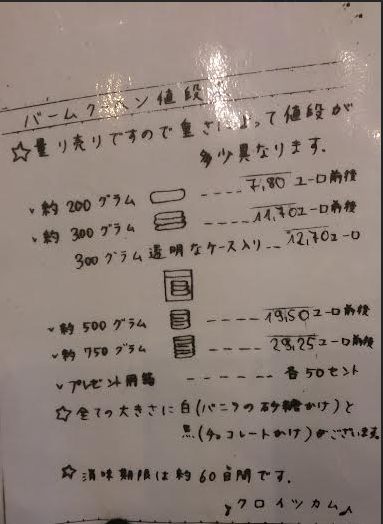 バームクーヘン値段
☆量り売りですので重さによって値段が
多少異なります.
✓約200グラム ---- 7,80 ユーロ前後
✓約300グラム ---- 11,70ユーロ前後
300グラム透明なケース入り--- 12,70ユーロ
✓約500グラム ----- 19,50ユーロ前後
✓約750グラム ----- 29,25ユーロ前後
✓プレゼント用箱 ------ 各50セント
☆全ての大きさに白(バニラの砂糖かけ)と
黒(チョコレートかけ)がございます.
☆消味期限は約60日間です.
クロイツカム